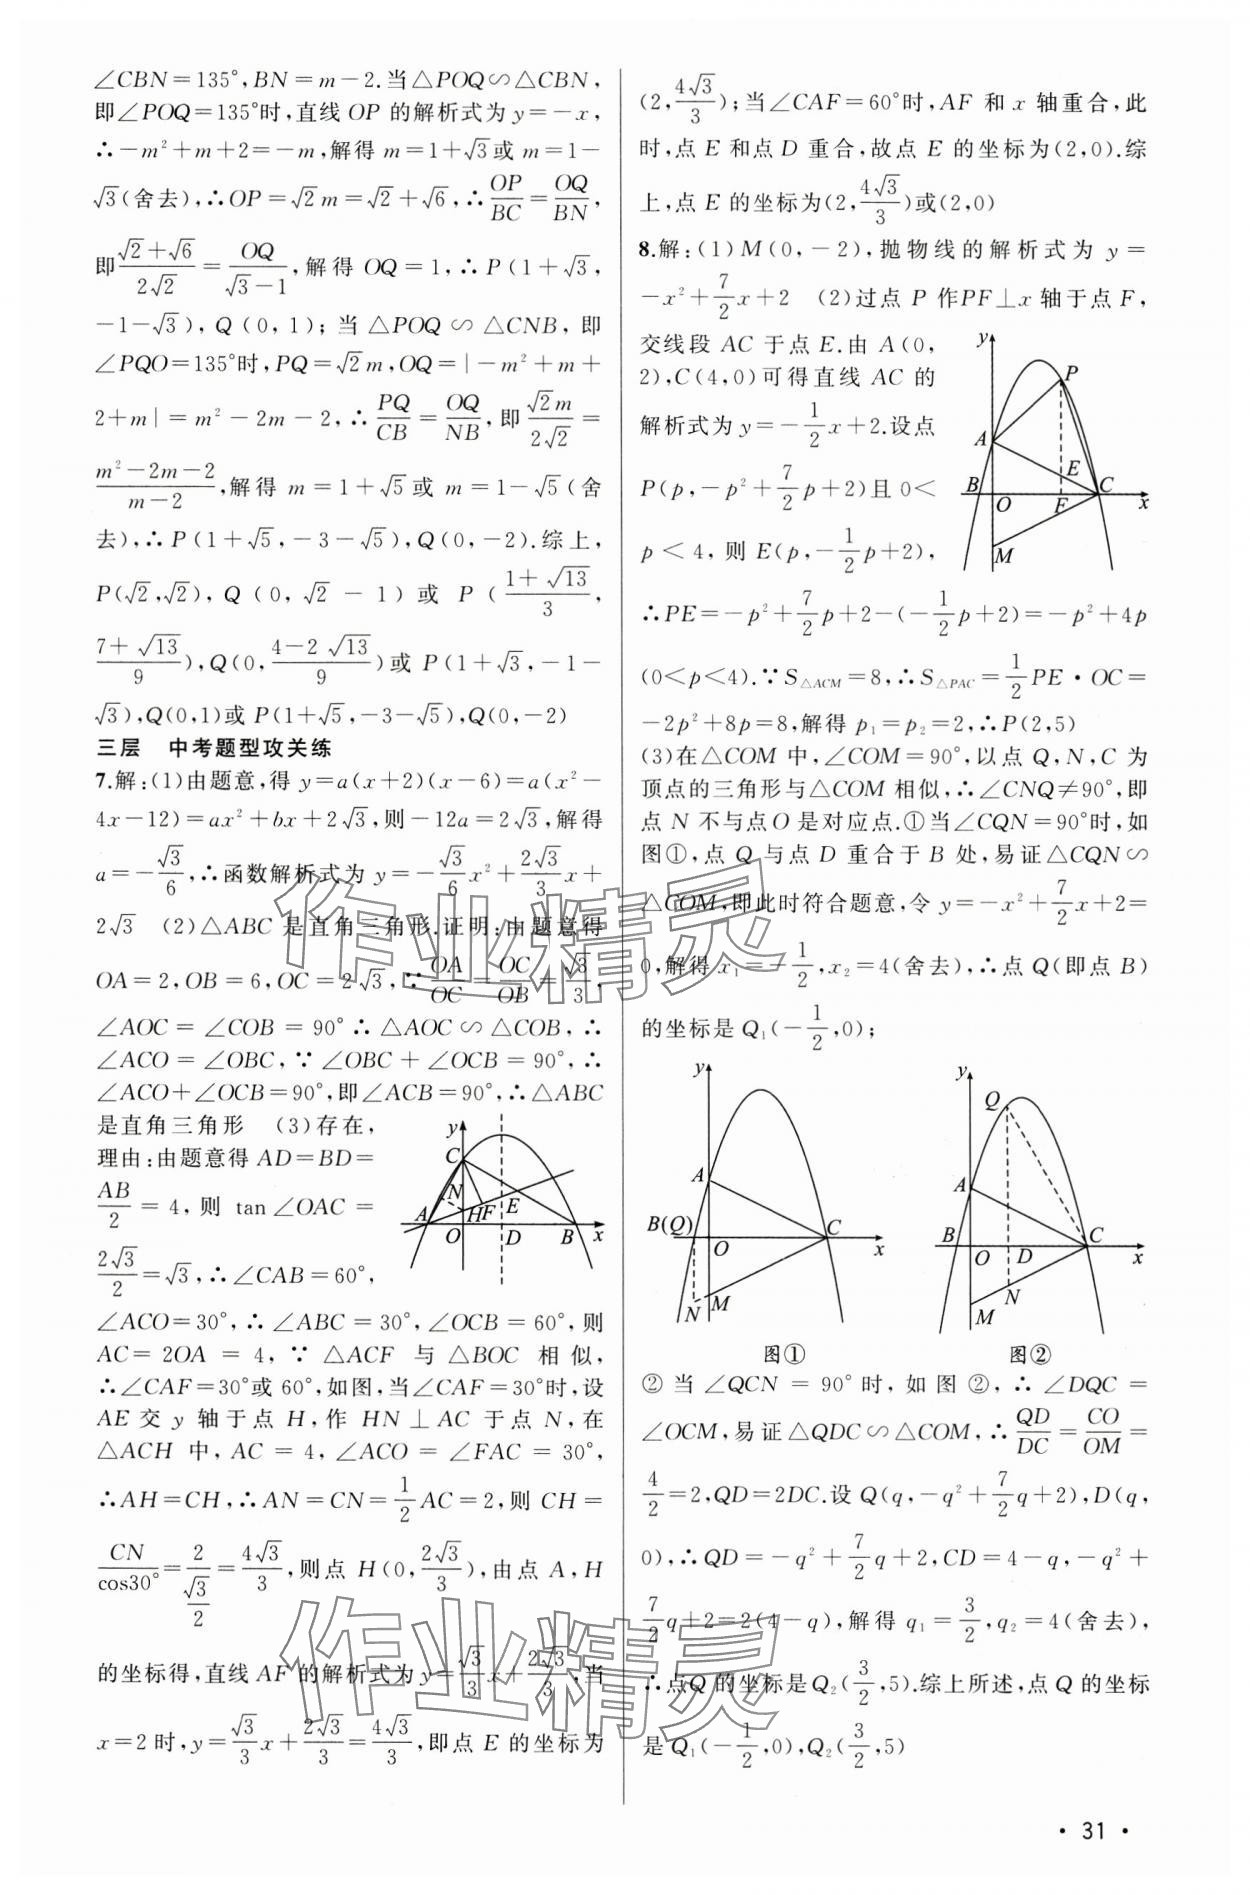 ∠CBN=135°,BN=m-2.当△POQ∽△CBN,
即∠POQ=135°时,直线OP的解析式为y=-x,
∴-m²+m+2=-m,解得m=1+√3或m=1-
√3(舍去),∴OP=√2m=√2+√6,∴OP/BC=OQ/BN,
即(√2+√6)/(2√2)=OQ/(√3-1),解得OQ=1,∴P(1+√3,
-1-√3),Q(0,1);当△POQ∽△CNB,即
∠PQO=135°时,PQ=√2m,OQ=|-m²+m+
2+m|=m²-2m-2,∴PQ/CB=OQ/NB,即√2m/(2√2)=
(m²-2m-2)/(m-2),解得m=1+√5或m=1-√5(舍
去),∴P(1+√5,-3-√5),Q(0,-2).综上,
P(√2,√2),Q(0,√2-1)或P((1+√13)/3,
(7+√13)/9),Q(0,(4-2√13)/9)或P(1+√3,-1-
√3),Q(0,1)或P(1+√5,-3-√5),Q(0,-2)
三层 中考题型攻关练
7.解:(1)由题意,得y=a(x+2)(x-6)=a(x²-
4x-12)=ax²+bx+2√3,则-12a=2√3,解得
a=-√3/6,∴函数解析式为y=-√3/6x²+2√3/3x+
2√3 (2)△ABC是直角三角形.证明:由题意得
OA=2,OB=6,OC=2√3,∵OA/OC=OC/OB=√3/3,
∠AOC=∠COB=90°∴△AOC∽△COB,∴
∠ACO=∠OBC,∵∠OBC+∠OCB=90°,∴
∠ACO+∠OCB=90°,即∠ACB=90°,∴△ABC
是直角三角形 (3)存在,
理由:由题意得AD=BD=
AB/2=4,则tan∠OAC=
2√3/2=√3,∴∠CAB=60°,
y
C
N
E
A
H
F
O
D
B
x
∠ACO=30°,∴∠ABC=30°,∠OCB=60°,则
AC=2OA=4,∵△ACF与△BOC相似,
∴∠CAF=30°或60°,如图,当∠CAF=30°时,设
AE交y轴于点H,作HN⊥AC于点N,在
△ACH中,AC=4,∠ACO=∠FAC=30°,
∴AH=CH,∴AN=CN=1/2AC=2,则CH=
CN/cos30°=2/(√3/2)=4√3/3,则点H(0,2√3/3),由点A,H
的坐标得,直线AF的解析式为y=√3/3x+2√3/3;当
x=2时,y=√3/3x+2√3/3=4√3/3,即点E的坐标为
(2,4√3/3);当∠CAF=60°时,AF和x轴重合,此
时,点E和点D重合,故点E的坐标为(2,0).综
上,点E的坐标为(2,4√3/3)或(2,0)
8.解:(1)M(0,-2),抛物线的解析式为y=
-x²+7/2x+2 (2)过点P作PF⊥x轴于点F,
交线段AC于点E.由A(0,
2),C(4,0)可得直线AC的
解析式为y=-1/2x+2.设点
P(p,-p²+7/2p+2)且0<
p<4,则E(p,-1/2p+2),
y
P
A
E
B
O
F
C
x
M
∴PE=-p²+7/2p+2-(-1/2p+2)=-p²+4p
(0<p<4).∵S△ACM=8,∴S△PAC=1/2PE·OC=
-2p²+8p=8,解得p₁=p₂=2,∴P(2,5)
(3)在△COM中,∠COM=90°,以点Q,N,C为
顶点的三角形与△COM相似,∴∠CNQ≠90°,即
点N不与点O是对应点.①当∠CQN=90°时,如
图①,点Q与点D重合于B处,易证△CQN∽
△COM,即此时符合题意,令y=-x²+7/2x+2=
0,解得x₁=-1/2,x₂=4(舍去),∴点Q(即点B)
的坐标是Q₁(-1/2,0);
y
A
B(Q)
O
C
x
N
M
图①
y
Q
A
B
O
D
C
x
N
M
图②
②当∠QCN=90°时,如图②,∴∠DQC=
∠OCM,易证△QDC∽△COM,∴QD/DC=CO/OM=
4/2=2,QD=2DC.设Q(q,-q²+7/2q+2),D(q,
0),∴QD=-q²+7/2q+2,CD=4-q,-q²+
7/2q+2=2(4-q),解得q₁=3/2,q₂=4(舍去),
∴点Q的坐标是Q₂(3/2,5).综上所述,点Q的坐标
是Q₁(-1/2,0),Q₂(3/2,5)
作业精灵
作业精灵
·31·